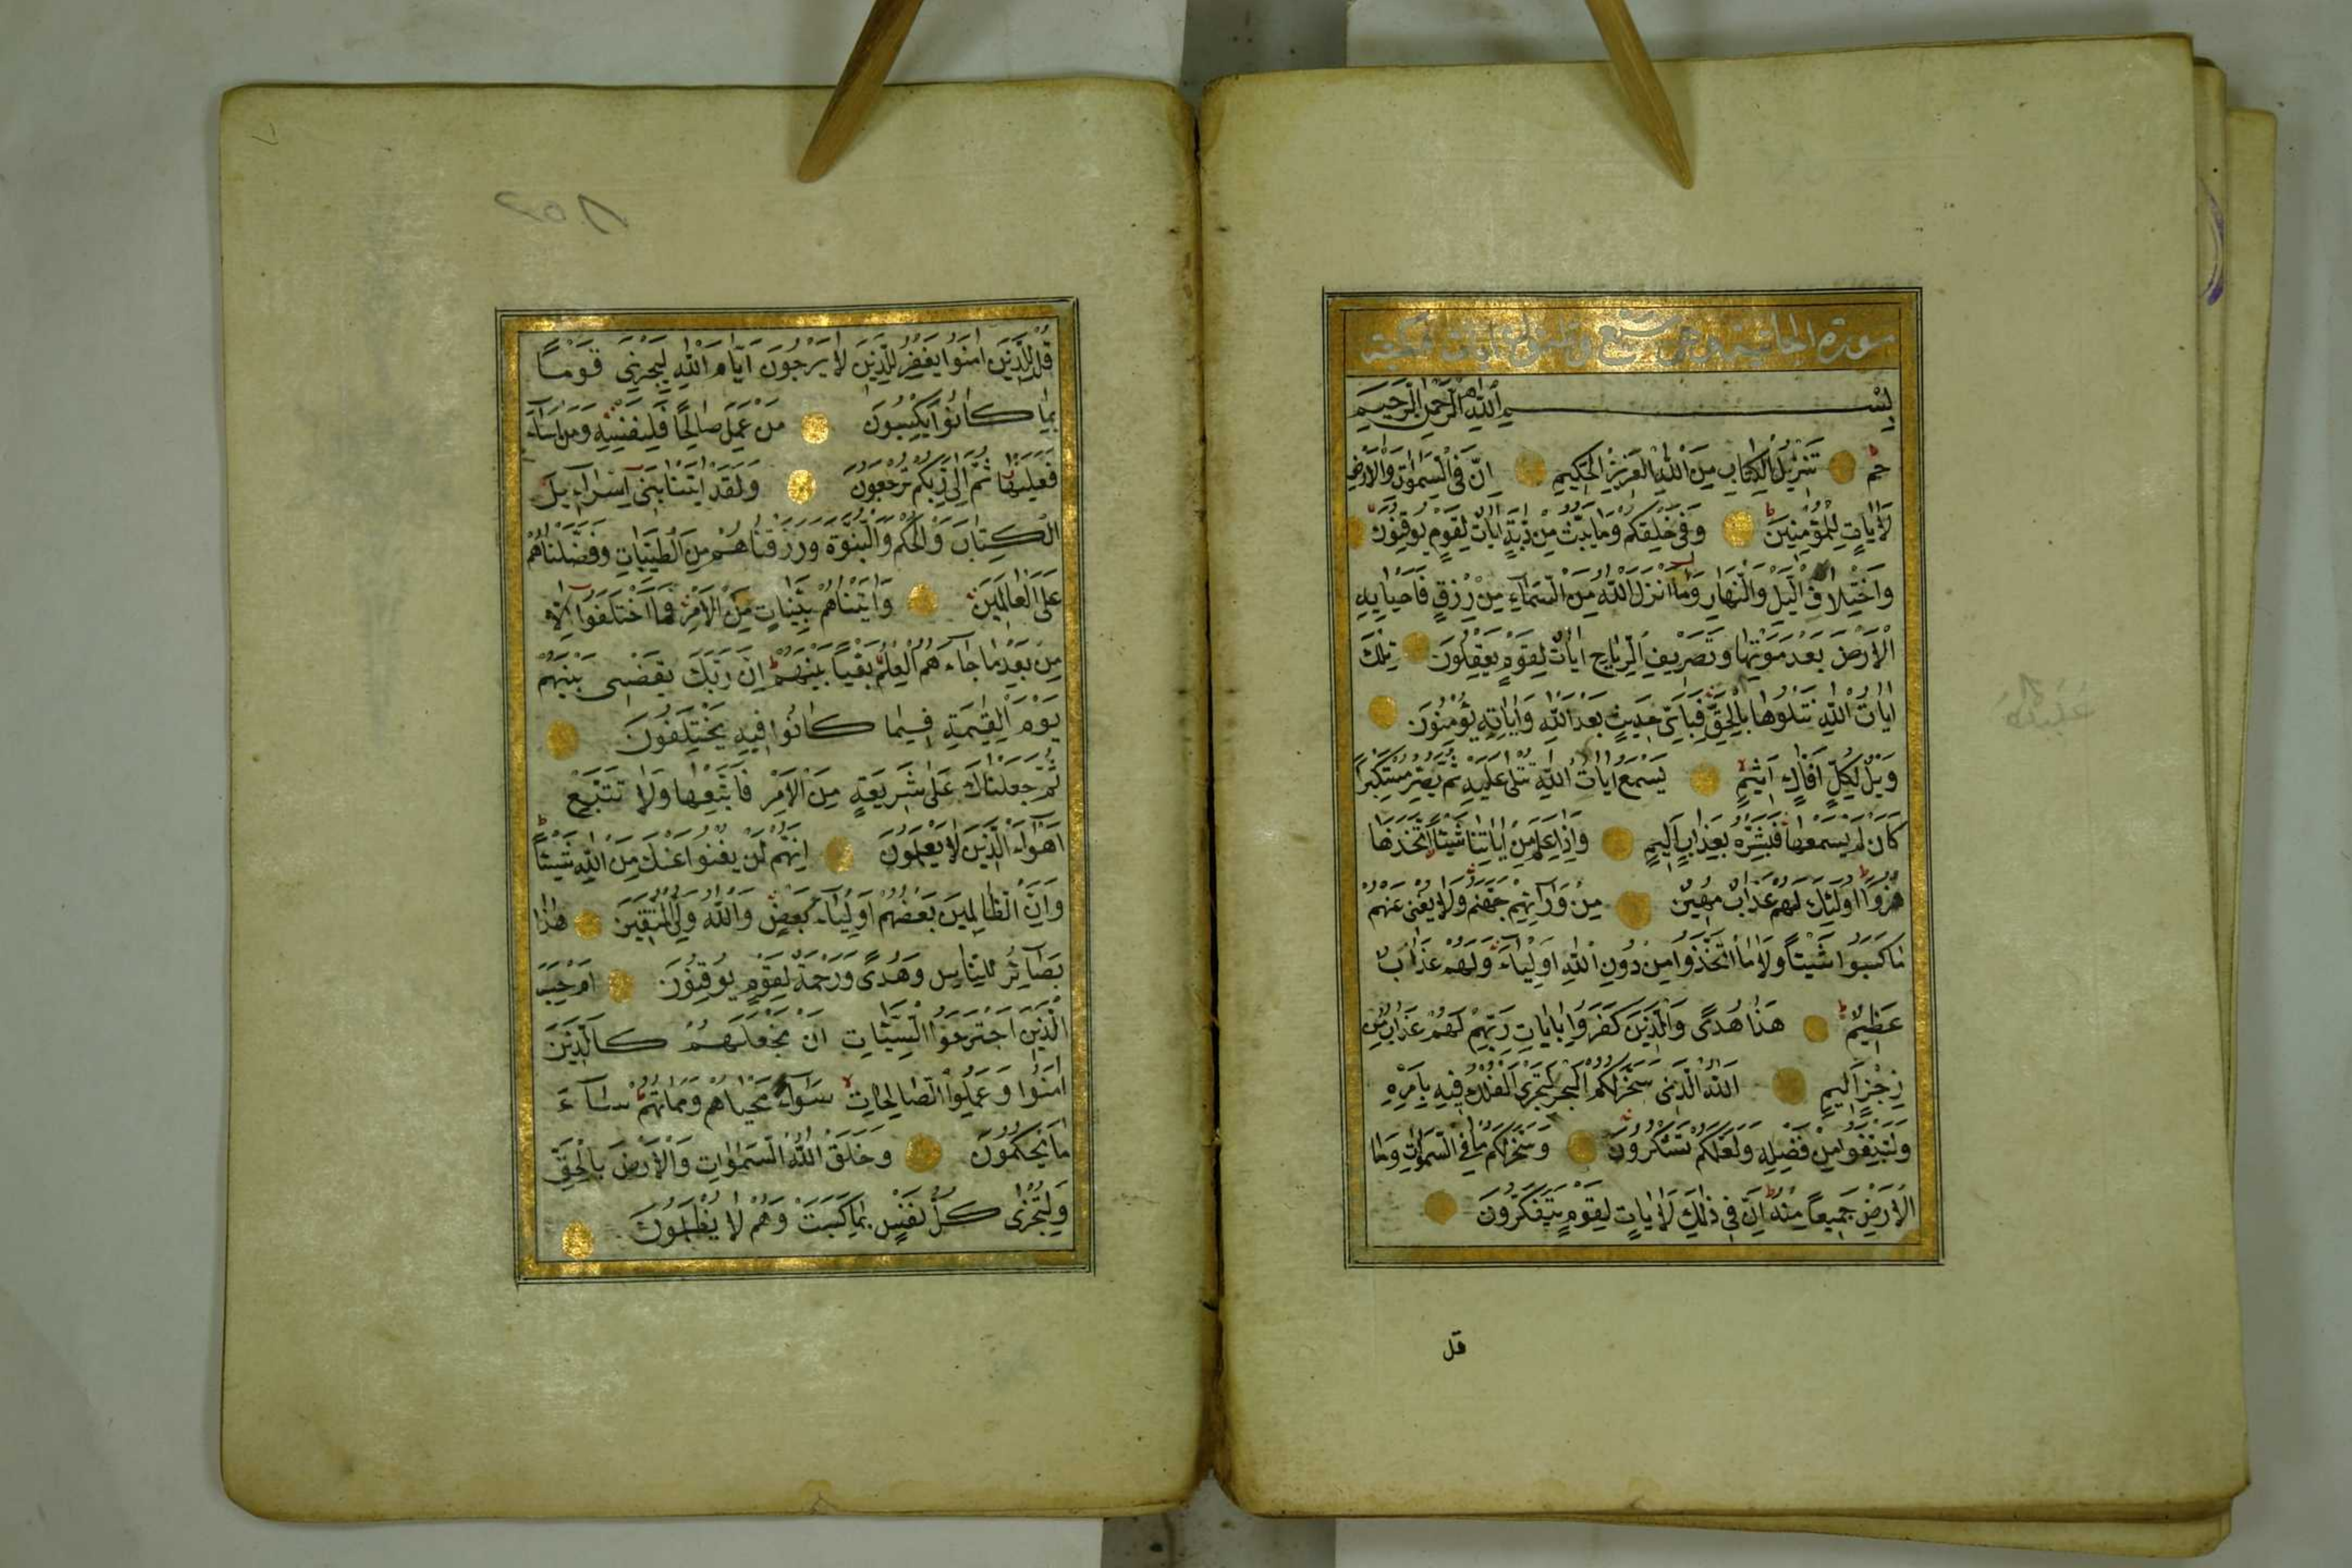 سورة الجاثية وهي سبع وثلثون آيات مكية
بِسْمِ اللهِ الرَّحْمٰنِ الرَّحِيمِ
حم تَنْزِيلُ الْكِتَابِ مِنَ اللهِ الْعَزِيزِ الْحَكِيمِ اِنَّ فِي السَّمٰوَاتِ وَالْاَرْضِ
لَاٰيَاتٍ لِلْمُؤْمِنِينَ وَفِي خَلْقِكُمْ وَمَا يَبُثُّ مِنْ دَابَّةٍ اٰيَاتٌ لِقَوْمٍ يُوقِنُونَ
وَاخْتِلَافِ الَّيْلِ وَالنَّهَارِ وَمَا اَنْزَلَ اللهُ مِنَ السَّمَاءِ مِنْ رِزْقٍ فَاَحْيَا بِهِ
الْاَرْضَ بَعْدَ مَوْتِهَا وَتَصْرِيفِ الرِّيَاحِ اٰيَاتٌ لِقَوْمٍ يَعْقِلُونَ تِلْكَ
اٰيَاتُ اللهِ نَتْلُوهَا بِالْحَقِّ فَبِاَيِّ حَدِيثٍ بَعْدَ اللهِ وَاٰيَاتِهِ يُؤْمِنُونَ
وَيْلٌ لِكُلِّ اَفَّاكٍ اَثِيمٍ يَسْمَعُ اٰيَاتِ اللهِ تُتْلٰى عَلَيْهِ ثُمَّ يُصِرُّ مُسْتَكْبِرًا
كَاَنْ لَمْ يَسْمَعْهَا فَبَشِّرْهُ بِعَذَابٍ اَلِيمٍ وَاِذَا عَلِمَ مِنْ اٰيَاتِنَا شَيْئًا اتَّخَذَهَا
هُزُوًا اُولٰئِكَ لَهُمْ عَذَابٌ مُهِينٌ مِنْ وَرَائِهِمْ جَهَنَّمُ وَلَا يُغْنِي عَنْهُمْ
مَا كَسَبُوا شَيْئًا وَلَا مَا اتَّخَذُوا مِنْ دُونِ اللهِ اَوْلِيَاءَ وَلَهُمْ عَذَابٌ
عَظِيمٌ هٰذَا هُدًى وَالَّذِينَ كَفَرُوا بِاٰيَاتِ رَبِّهِمْ لَهُمْ عَذَابٌ مِنْ
رِجْزٍ اَلِيمٌ اَللهُ الَّذِي سَخَّرَ لَكُمُ الْبَحْرَ لِتَجْرِيَ الْفُلْكُ فِيهِ بِاَمْرِهِ
وَلِتَبْتَغُوا مِنْ فَضْلِهِ وَلَعَلَّكُمْ تَشْكُرُونَ وَسَخَّرَ لَكُمْ مَا فِي السَّمٰوَاتِ وَمَا فِي
الْاَرْضِ جَمِيعًا مِنْهُ اِنَّ فِي ذٰلِكَ لَاٰيَاتٍ لِقَوْمٍ يَتَفَكَّرُونَ
قل
قُلْ لِلَّذِينَ اٰمَنُوا يَغْفِرُوا لِلَّذِينَ لَا يَرْجُونَ اَيَّامَ اللهِ لِيَجْزِيَ قَوْمًا
بِمَا كَانُوا يَكْسِبُونَ مَنْ عَمِلَ صَالِحًا فَلِنَفْسِهِ وَمَنْ اَسَاءَ
فَعَلَيْهَا ثُمَّ اِلٰى رَبِّكُمْ تُرْجَعُونَ وَلَقَدْ اٰتَيْنَا بَنِي اِسْرَائِيلَ
الْكِتَابَ وَالْحُكْمَ وَالنُّبُوَّةَ وَرَزَقْنَاهُمْ مِنَ الطَّيِّبَاتِ وَفَضَّلْنَاهُمْ
عَلَى الْعَالَمِينَ وَاٰتَيْنَاهُمْ بَيِّنَاتٍ مِنَ الْاَمْرِ فَمَا اخْتَلَفُوا اِلَّا
مِنْ بَعْدِ مَا جَاءَهُمُ الْعِلْمُ بَغْيًا بَيْنَهُمْ اِنَّ رَبَّكَ يَقْضِي بَيْنَهُمْ
يَوْمَ الْقِيٰمَةِ فِيمَا كَانُوا فِيهِ يَخْتَلِفُونَ
ثُمَّ جَعَلْنَاكَ عَلٰى شَرِيعَةٍ مِنَ الْاَمْرِ فَاتَّبِعْهَا وَلَا تَتَّبِعْ
اَهْوَاءَ الَّذِينَ لَا يَعْلَمُونَ اِنَّهُمْ لَنْ يُغْنُوا عَنْكَ مِنَ اللهِ شَيْئًا
وَاِنَّ الظَّالِمِينَ بَعْضُهُمْ اَوْلِيَاءُ بَعْضٍ وَاللهُ وَلِيُّ الْمُتَّقِينَ هٰذَا
بَصَائِرُ لِلنَّاسِ وَهُدًى وَرَحْمَةٌ لِقَوْمٍ يُوقِنُونَ اَمْ حَسِبَ
الَّذِينَ اجْتَرَحُوا السَّيِّئَاتِ اَنْ نَجْعَلَهُمْ كَالَّذِينَ
اٰمَنُوا وَعَمِلُوا الصَّالِحَاتِ سَوَاءً مَحْيَاهُمْ وَمَمَاتُهُمْ سَاءَ
مَا يَحْكُمُونَ وَخَلَقَ اللهُ السَّمٰوَاتِ وَالْاَرْضَ بِالْحَقِّ
وَلِتُجْزٰى كُلُّ نَفْسٍ بِمَا كَسَبَتْ وَهُمْ لَا يُظْلَمُونَ